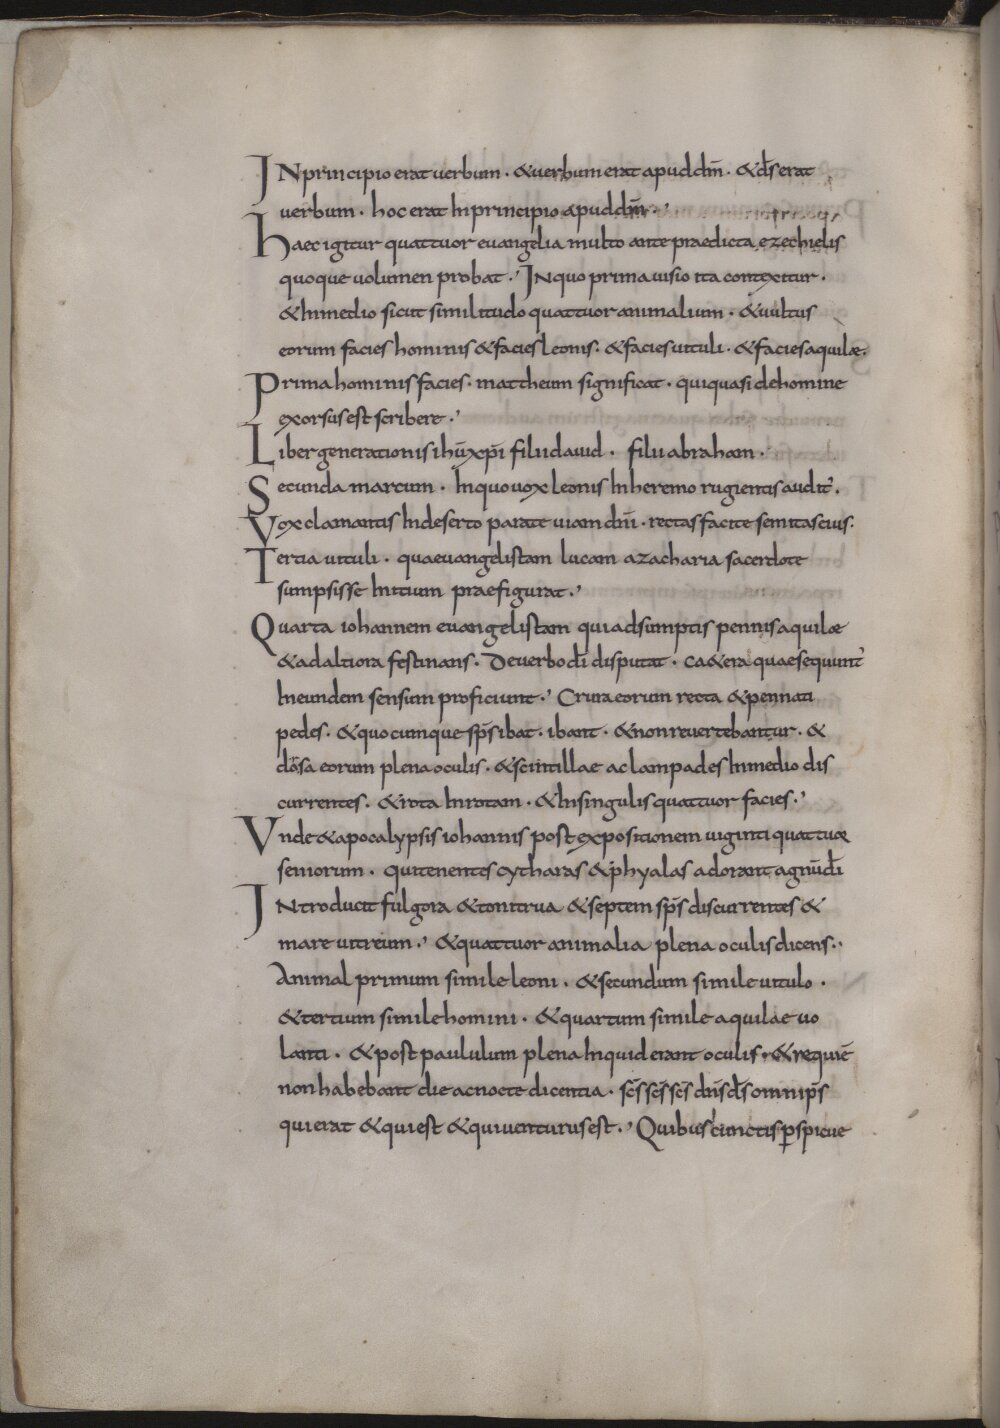 IN principio erat uerbum · & uerbum erat apud dm̅ · & ds̅ erat
uerbum · hoc erat in principio apud dm̅ ·
Haec igitur quattuor euangelia multo ante praedicta ezechielis
quoque uolumen probat · IN quo prima uisio ita contexitur ·
& in medio sicut similitudo quattuor animalium · & uultus
eorum facies hominis & facies leonis · & facies uituli · & facies aquilae ·
Prima hominis facies · mattheum significat · qui quasi de homine
exorsus est scribere ·
Liber generationis ihu̅ xpi̅ filii dauid · filii abraham ·
Secunda marcum · In quo uox leonis in heremo rugientis audit᷑ ·
Vox clamantis in deserto parate uiam dni̅ · rectas facite semitas eius ·
Tertia uituli · quae euangelistam lucam a zacharia sacerdote
sumpsisse initium praefigurat ·
Quarta iohannem euangelistam qui adsumptis pennis aquilae
& ad altiora festinans · De uerbo di̅ disputat · c&era quae sequunt᷑
In eundem sensum proficiunt · Crura eorum recta & pennati
pedes · & quocumque sps̅ ibat · ibant · & non reuertebantur · &
dorsa eorum plena oculis · & scintillae ac lampades in medio dis
currentes · & rota in rotam · & in singulis quattuor facies ·
Vnde & apocalypsis iohannis post expositionem uiginti quattuor
seniorum · qui tenentes cytharas & phyalas adorant agnu̅ di̅
INtroducit fulgora & tonitrua & septem sps̅ discurrentes &
mare uitreum · & quattuor animalia plena oculis dicens ·
Animal primum simile leoni · & secundum simile uitulo ·
& tertium simile homini · & quartum simile aquilae uo
lanti · & post paululum plena inquid erant oculis · & requie̅
non habebant die ac nocte dicentia · scs̅ scs̅ scs̅ dns̅ ds̅ omnips̅
qui erat & qui est & qui uenturus est · Quibus cunctis p̲spicue